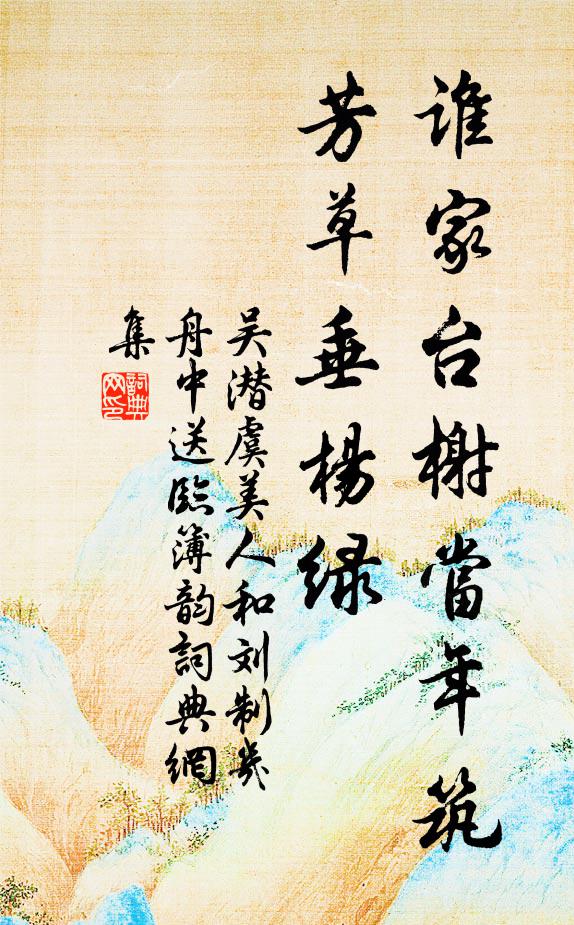 谁家台榭當年筑
芳草垂楊緑
吴潜虞美人和刘制幾
舟中送臨簿韵詞典網
集
詞典網印